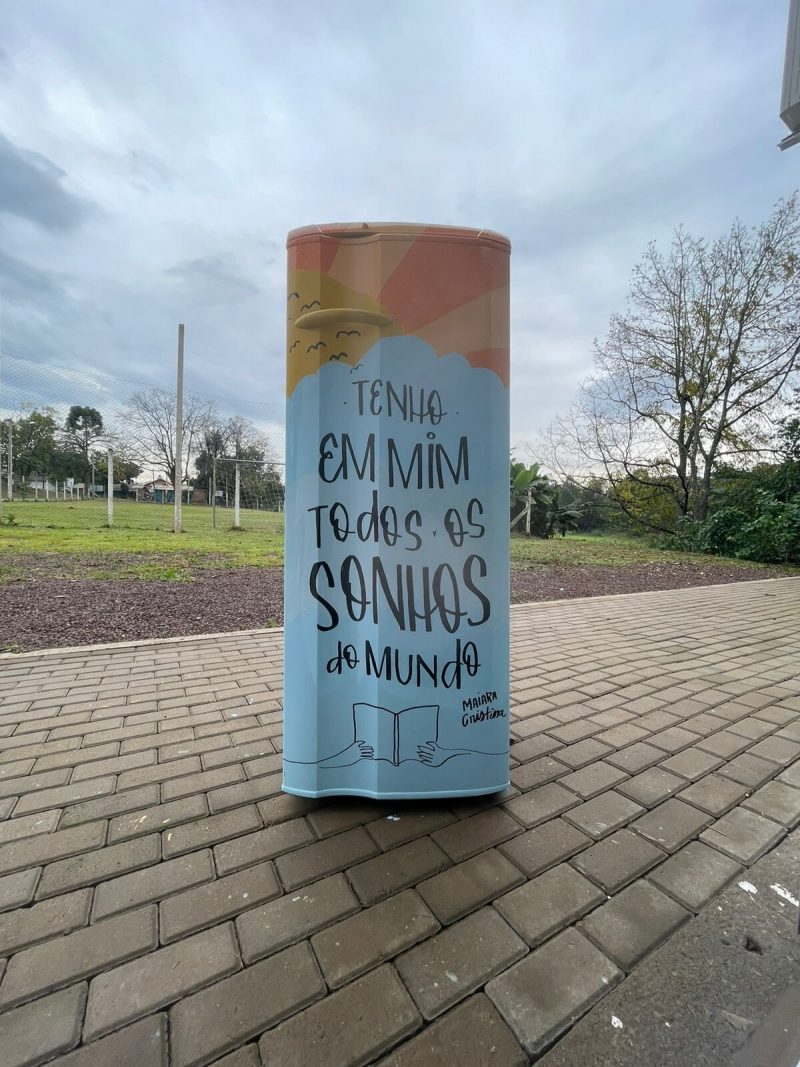 · TENHO ·
EM MIM
TODOS · OS
SONHOS
do MUNdO
MAIARA
Cristina